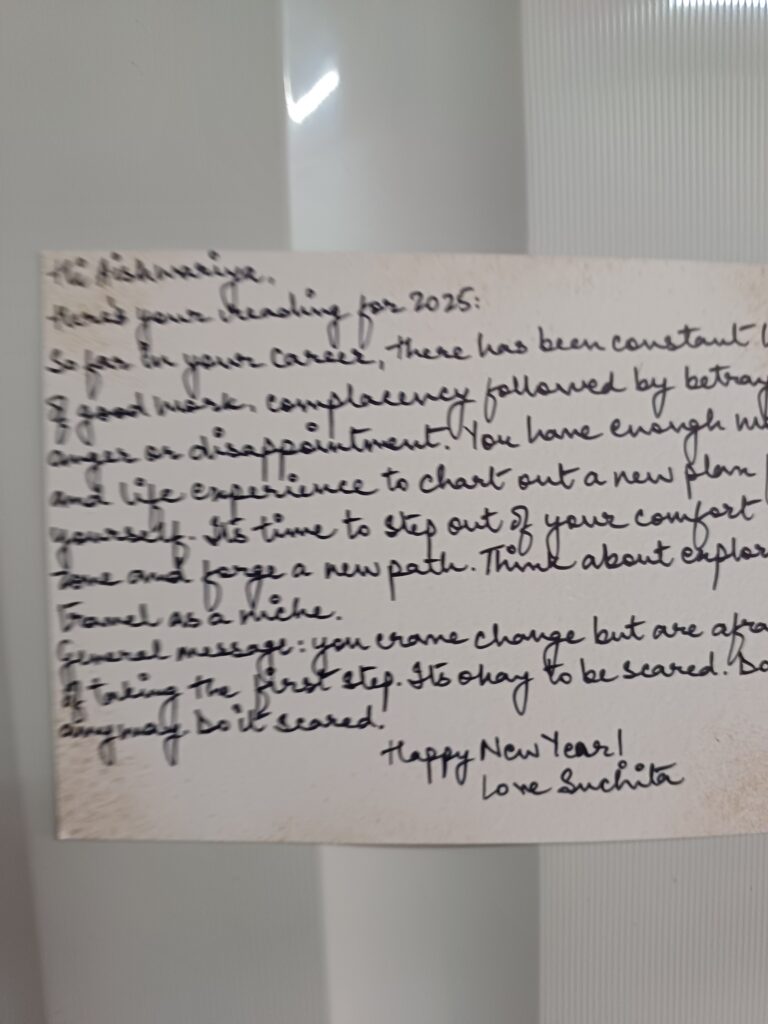 Hi Aishwariya.
Here's your reading for 2025:
So far in your career, there has been constant
of good work, complacency followed by betray
anger or disappointment. You have enough
and life experience to chart out a new plan
yourself. Its time to step out of your comfort
zone and forge a new path. Think about explor
Travel as a niche.
General message: you crave change but are afra
of taking the first step. Its okay to be scared. Do
anyway Do it scared.
Happy New Year!
Love Suchita